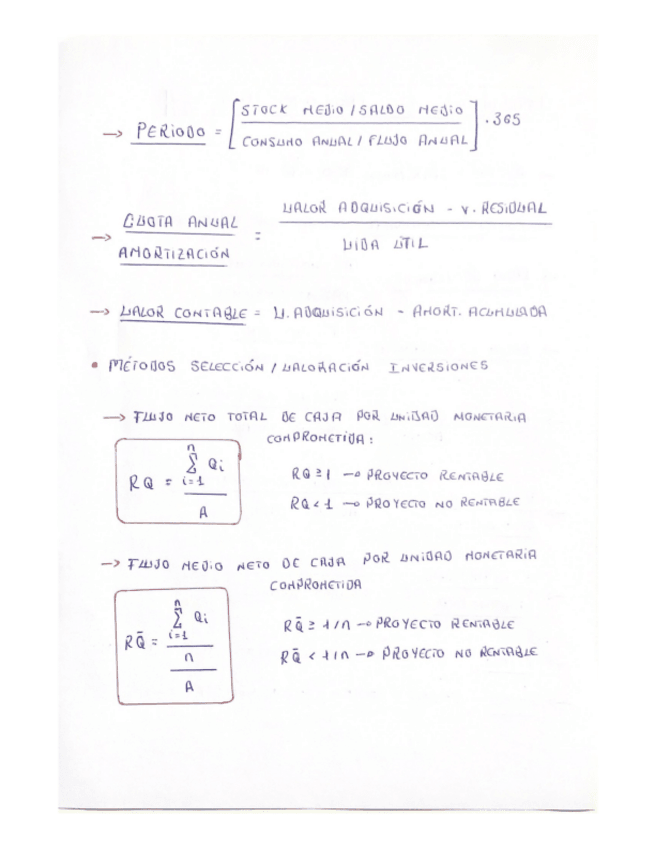 → PERIODO = [STOCK MEDIO / SALDO MEDIO / CONSUMO ANUAL / FLUJO ANUAL] · 365
→ CUOTA ANUAL AMORTIZACIÓN = VALOR ADQUISICIÓN - V. RESIDUAL / VIDA ÚTIL
→ VALOR CONTABLE = V. ADQUISICIÓN - AMORT. ACUMULADA
• MÉTODOS SELECCIÓN / VALORACIÓN INVERSIONES
→ FLUJO NETO TOTAL DE CAJA POR UNIDAD MONETARIA
COMPROMETIDA:
RQ = n Σ i=1 Qi / A
RQ ≥ 1 → PROYECTO RENTABLE
RQ < 1 → PROYECTO NO RENTABLE
→ FLUJO MEDIO NETO DE CAJA POR UNIDAD MONETARIA
COMPROMETIDA
RQ̄ = n Σ i=1 Qi / n / A
RQ̄ ≥ 1/n → PROYECTO RENTABLE
RQ̄ < 1/n → PROYECTO NO RENTABLE